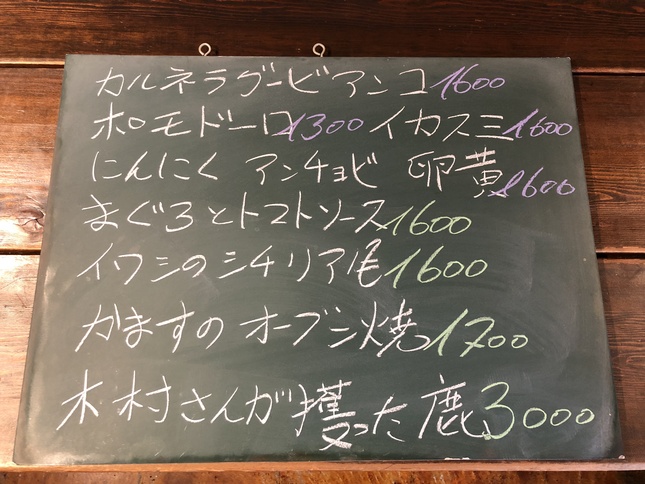 カルネラグービアンコ1600
ポモドーロ1300イカスミ1600
にんにく アンチョビ 1600
まぐろとトマトソース1600
イワシのシチリア風1600
かますのオーブン焼き1700
木村さんが獲った鹿3000